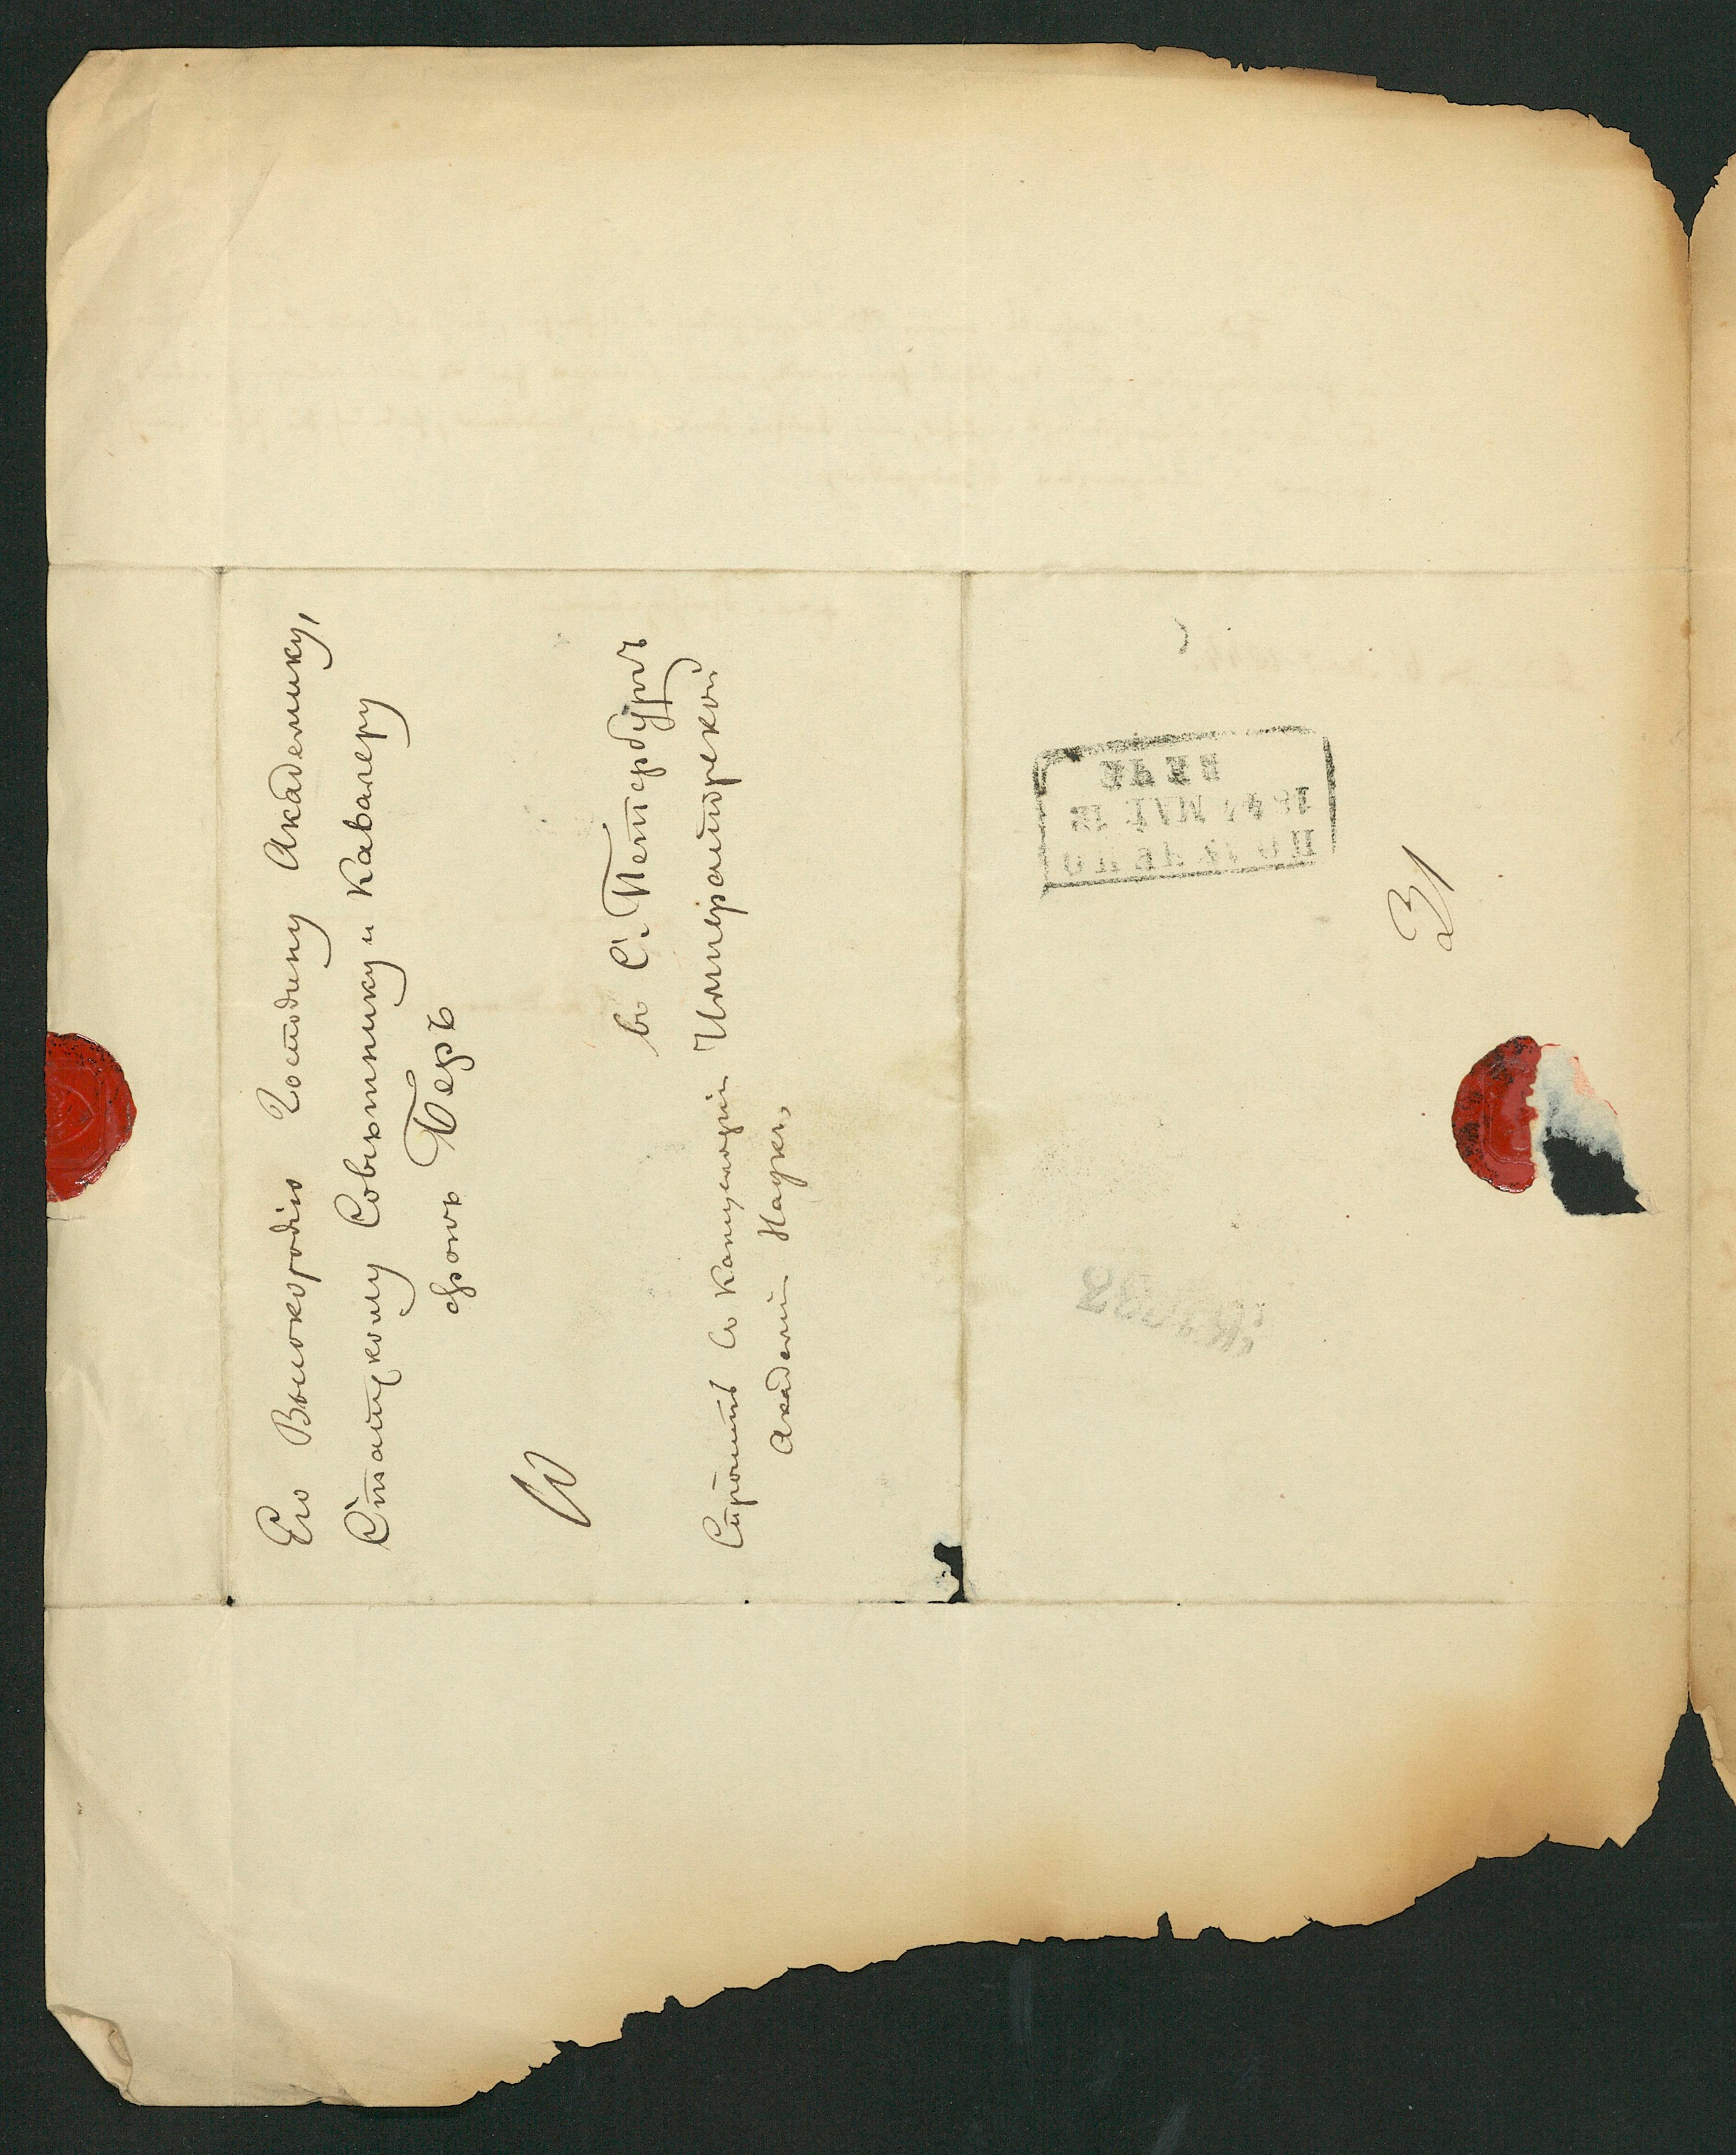 Его Высокородію Господину Академику,
Статскому Совѣтнику и Кавалеру
фонъ Беръ
въ С. Петербургъ
въ Канцеляріи Императорской
Академіи Наукъ,
ПОЛУЧЕНО
1844 МАЯ 12
ВЕЧЕ
31